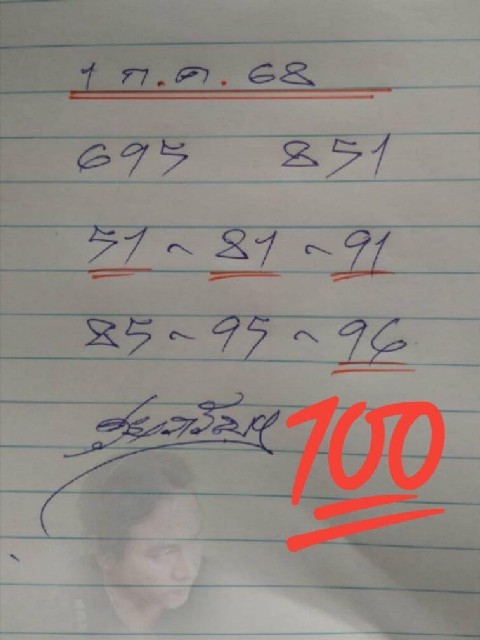 1 ก.ค. 68
695 851
51 ~ 81 ~ 91
85 ~ 95 ~ 96
100